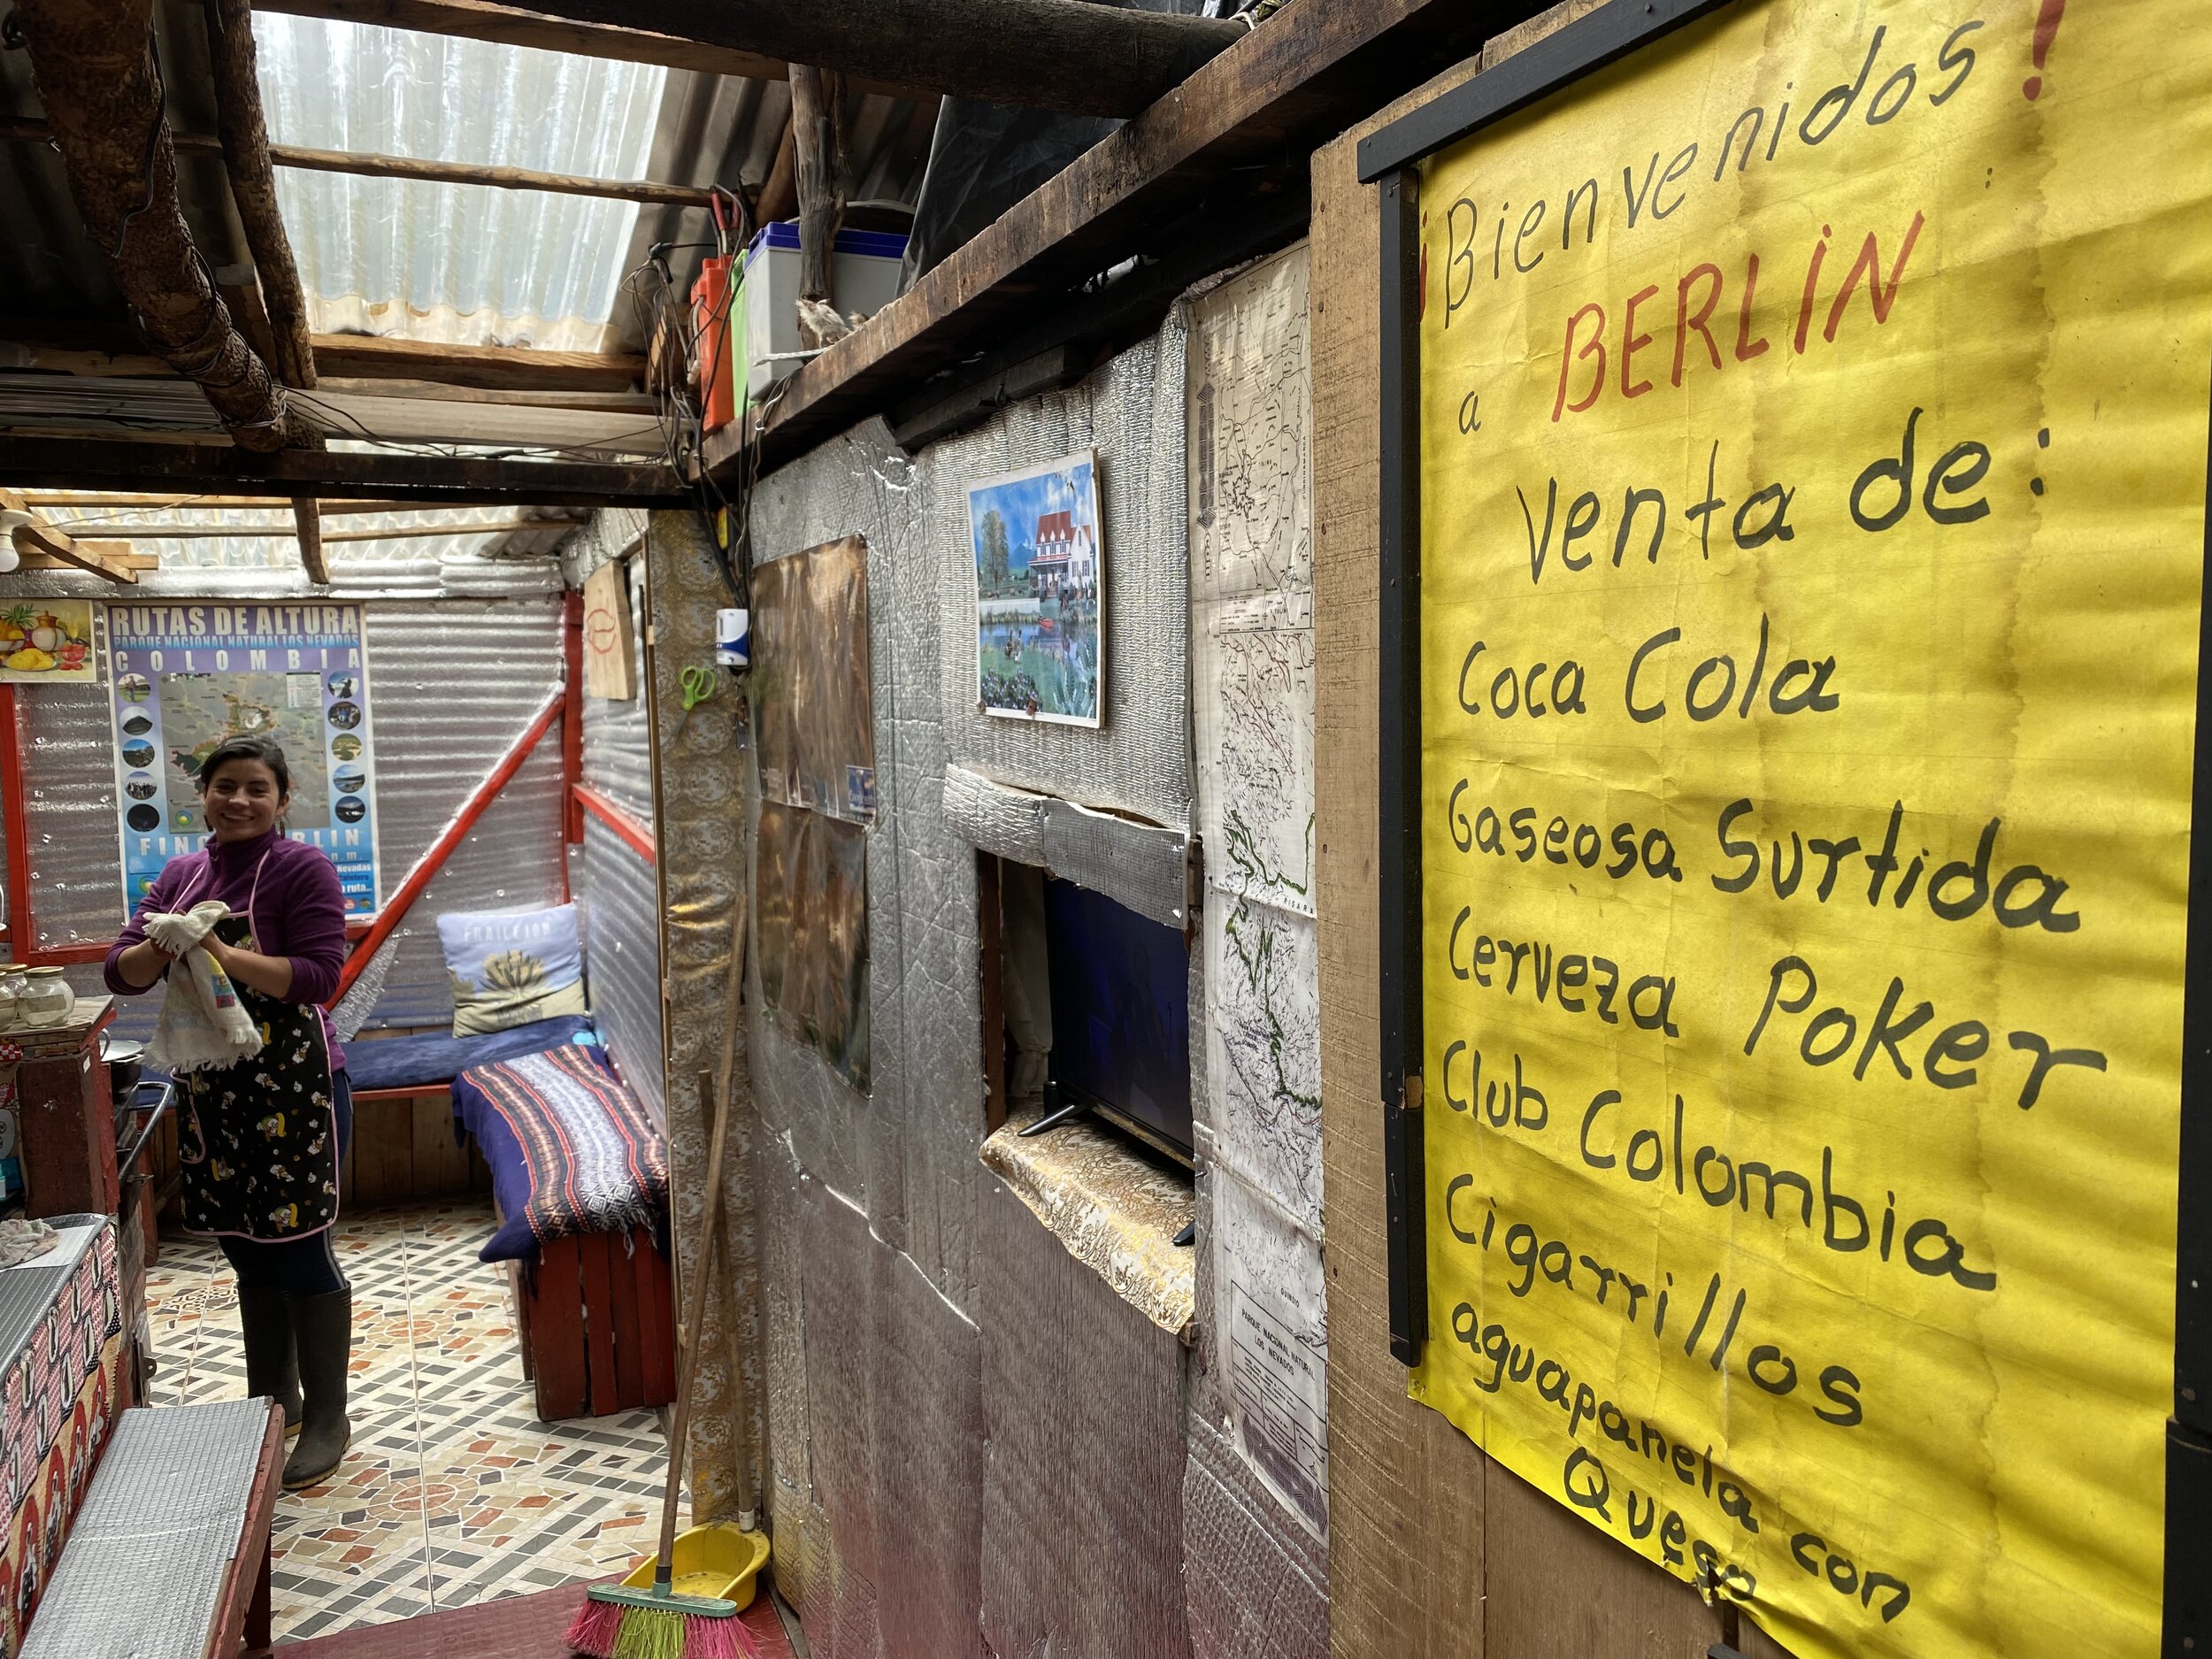 ¡Bienvenidos!
a BERLIN
Venta de:
Coca Cola
Gaseosa Surtida
Cerveza Poker
Club Colombia
Cigarrillos
aguapanela con
Queso
RUTAS DE ALTURA
PARQUE NACIONAL NATURAL LOS NEVADOS
COLOMBIA
FRAILEJON
PARQUE NACIONAL NATURAL
LOS NEVADOS
QUINDIO